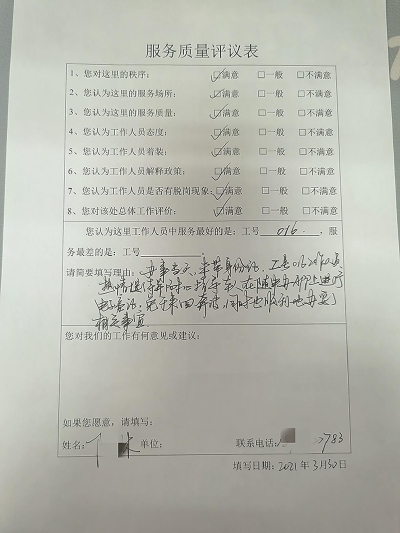 服务质量评议表
1、您对这里的秩序： ☑满意 □一般 □不满意
2、您认为这里的服务场所： ☑满意 □一般 □不满意
3、您认为这里的服务质量： ☑满意 □一般 □不满意
4、您认为工作人员态度： ☑满意 □一般 □不满意
5、您认为工作人员着装： ☑满意 □一般 □不满意
6、您认为工作人员解释政策： ☑满意 □一般 □不满意
7、您认为工作人员是否有脱岗现象： ☑满意 □一般 □不满意
8、您对该处总体工作评价： ☑满意 □一般 □不满意
您认为这里工作人员中服务最好的是：工号 016 ，服
务最差的是：工号
请简要填写理由： 办事当天，未带身份证，工号016工作人员
热情接待并耐心指导在随申办APP上进行
电子 免于来回奔波，同时也顺利地办完
相关事宜
您对我们的工作有何意见或建议：
如果您愿意，请填写：
姓名： 单位： 联系电话： 0783
填写日期：2021年3月30日